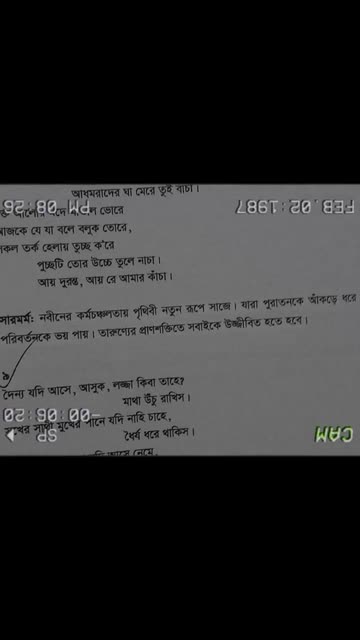 আধমরাদের ঘা মেরে তুই বাঁচা।
PM 08:26
FEB.02.1987
ভোরে
আজকে যে যা বলে বলুক তোরে,
সকল তর্ক হেলায় তুচ্ছ ক'রে
পুচ্ছটি তোর উচ্চে তুলে নাচা।
আয় দুরন্ত, আয় রে আমার কাঁচা।
সারমর্ম: নবীনের কর্মচঞ্চলতায় পৃথিবী নতুন রূপে সাজে। যারা পুরাতনকে আঁকড়ে ধরে
পরিবর্তনকে ভয় পায়। তারুণ্যের প্রাণশক্তিতে সবাইকে উজ্জীবিত হতে হবে।
৯
দৈন্য যদি আসে, আসুক, লজ্জা কিবা তাহে?
মাথা উঁচু রাখিস।
সুখের সাথী মুখের পানে যদি নাহি চাহে,
ধৈর্য ধরে থাকিস।
SP
CAM
আসে নেমে,